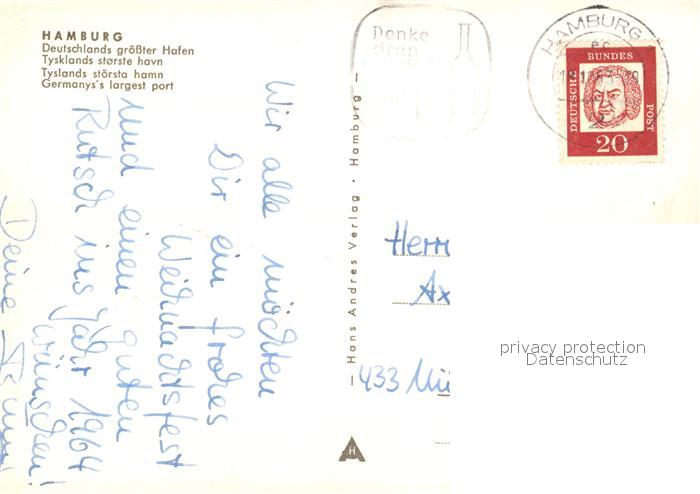 HAMBURG
Deutschlands größter Hafen
Tysklands største havn
Tyslands största hamn
Germanys's largest port
Wir alle möchten
Dir ein frohes
Weihnachtsfest
und einen guten
Rutsch ins Jahr 1964
wünschen!
Deine
— Hans Andres Verlag · Hamburg —
H
Denke
dran
HAMBURG
DEUTSCHE
BUNDES
POST
20
Herrn
Ax
433 Mü
privacy protection
Datenschutz